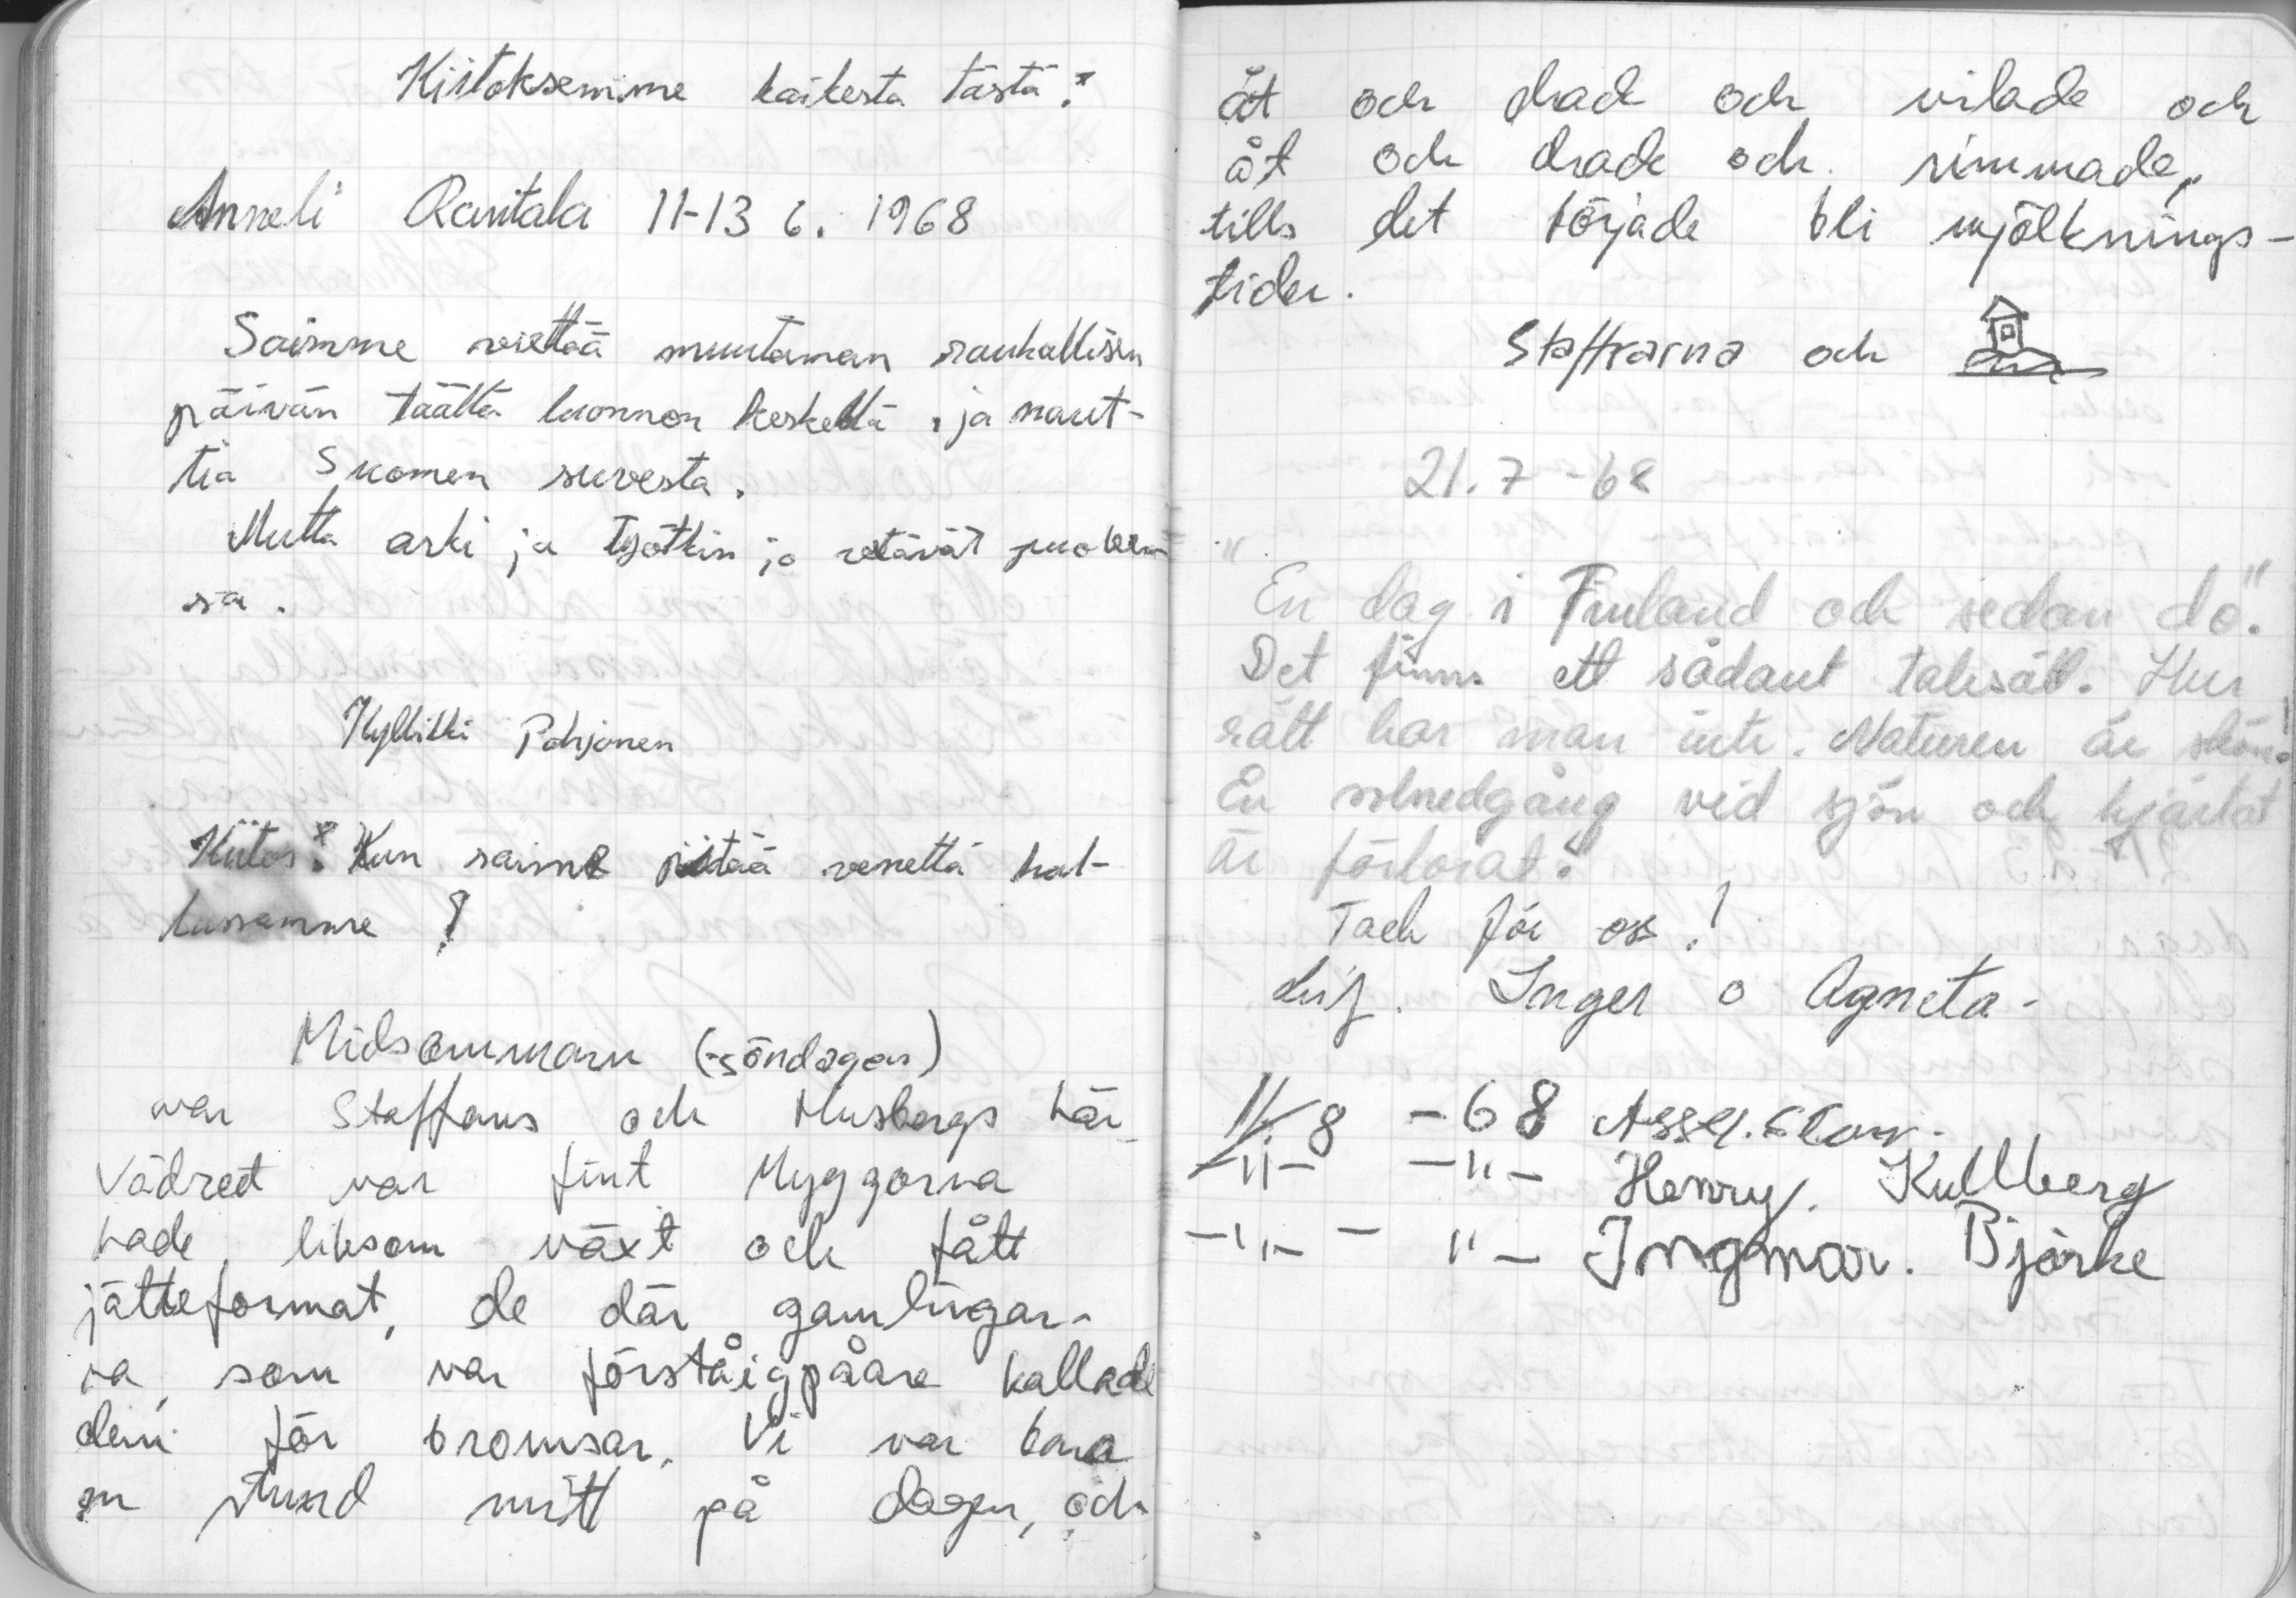 Kiitoksemme kaikesta tästä!
Anneli Rantala 11-13 6. 1968
Saimme viettää muutaman rauhallisen
päivän täällä luonnon keskellä, ja naut-
tia Suomen suvesta.
Mutta arki ja työtkin jo vetävät puoleen
sa.
Kyllikki Pohjonen
Kiitos! Kun saimme pitää venettä hal-
lussamme!
Midsommarn (-söndagen)
var Staffans och Musbergs här
Vädret var fint Myggorna
hade liksom växt och fått
jätteformat, de där gamlingar-
na, som var förståigpåare kallade
dem för bromsar. Vi var bara
en stund mitt på dagen, och
åt och drack och vilade och
åt och drack och simmade,
tills det började bli mjölknings-
tider.
Staffrarna och
21.7 -68
"En dag i Finland och sedan dö".
Det finns ett sådant talesätt. Hur
rätt har man inte. Naturen är skön!
En solnedgång vid sjön och hjärtat
är förlorat!
Tack för oss!
Inger o Agneta.
11.8 -68
-"- -"- Henry. Kullberg
-"- - "- Ingmar. Björke